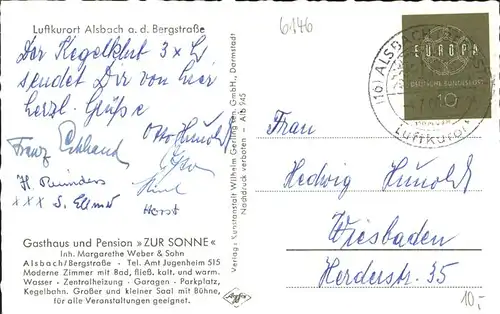 Luftkurort Alsbach a. d. Bergstraße
Der Kegelklub 3 x
sendet Dir von hier
herzl. Grüße
Franz
Otto
H. Reinders
xxx S.
Horst
Gasthaus und Pension »ZUR SONNE«
Inh. Margarethe Weber & Sohn
Alsbach/Bergstraße - Tel. Amt Jugenheim 515
Moderne Zimmer mit Bad, fließ. kalt. und warm.
Wasser - Zentralheizung - Garagen - Parkplatz,
Kegelbahn. Großer und kleiner Saal mit Bühne,
für alle Veranstaltungen geeignet.
Agfa
Verlag: Kunstanstalt Wilhelm Gerling jr. GmbH., Darmstadt
Nachdruck verboten - Alb 945
6146
(16) ALSBACH (BERGSTR
Luftkurort
EUROPA
DEUTSCHE BUNDESPOST
10
Frau
Hedwig Hunold
Wiesbaden
Herderstr. 35
10,-